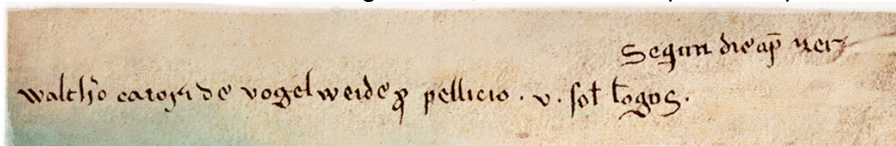 Sequn die ap̄ zei
walth̓o cātori de vogelweide ꝓ pellicio . v . ſol̄ lōgos.